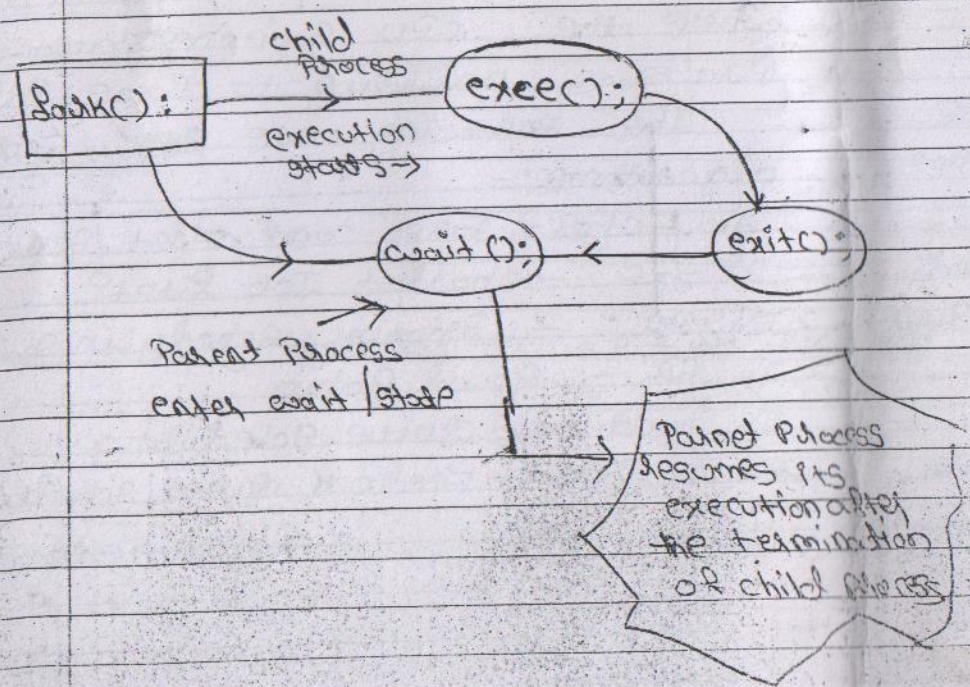 child
Process
fork();
exec();
execution
starts →
wait();
exit();
Parent Process
enter wait state
Parnet Process
resumes its
execution after
the termination
of child process